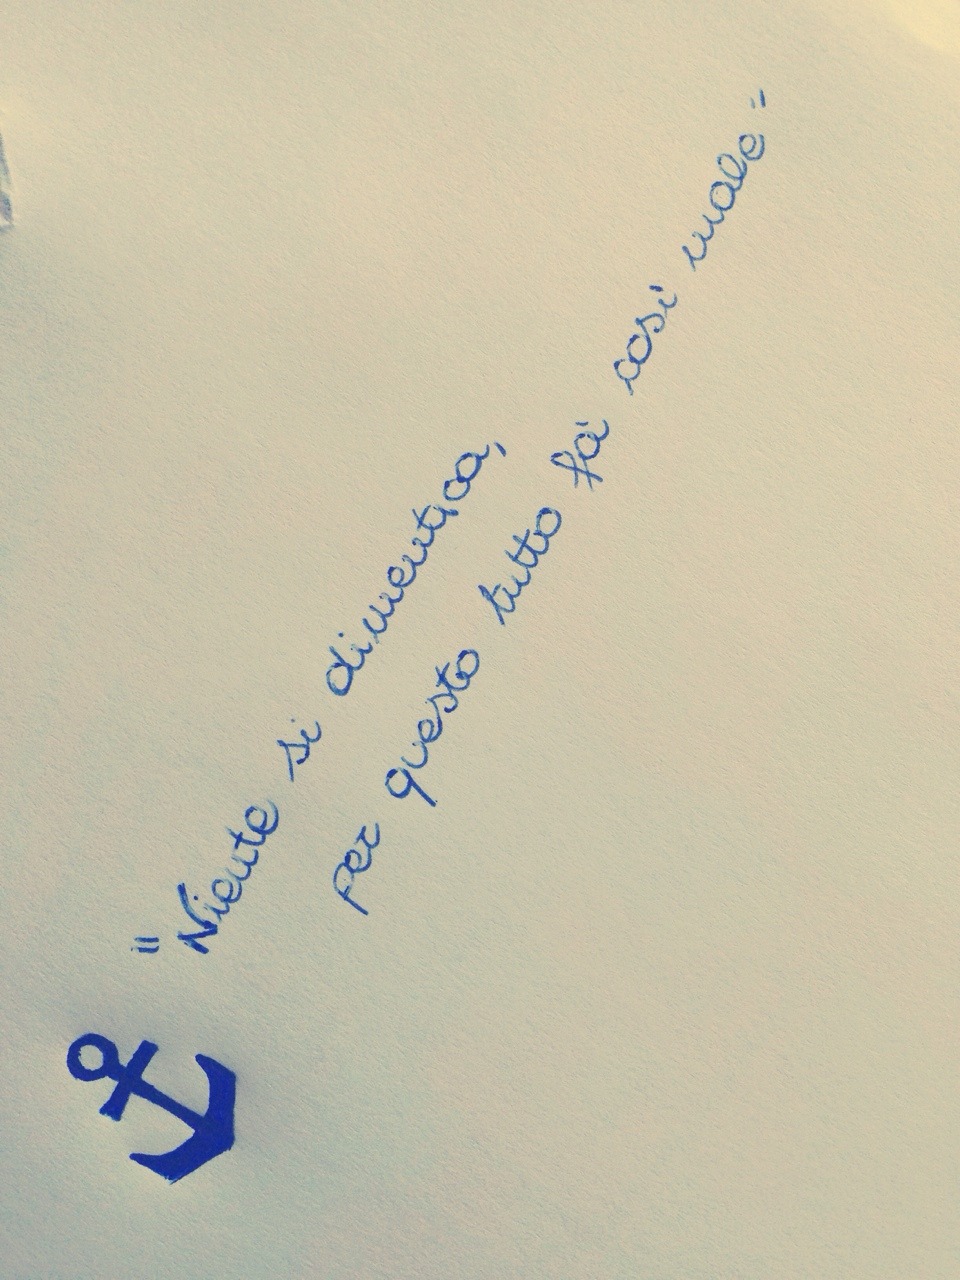 "Niente si dimentica,
per questo tutto fà così male"